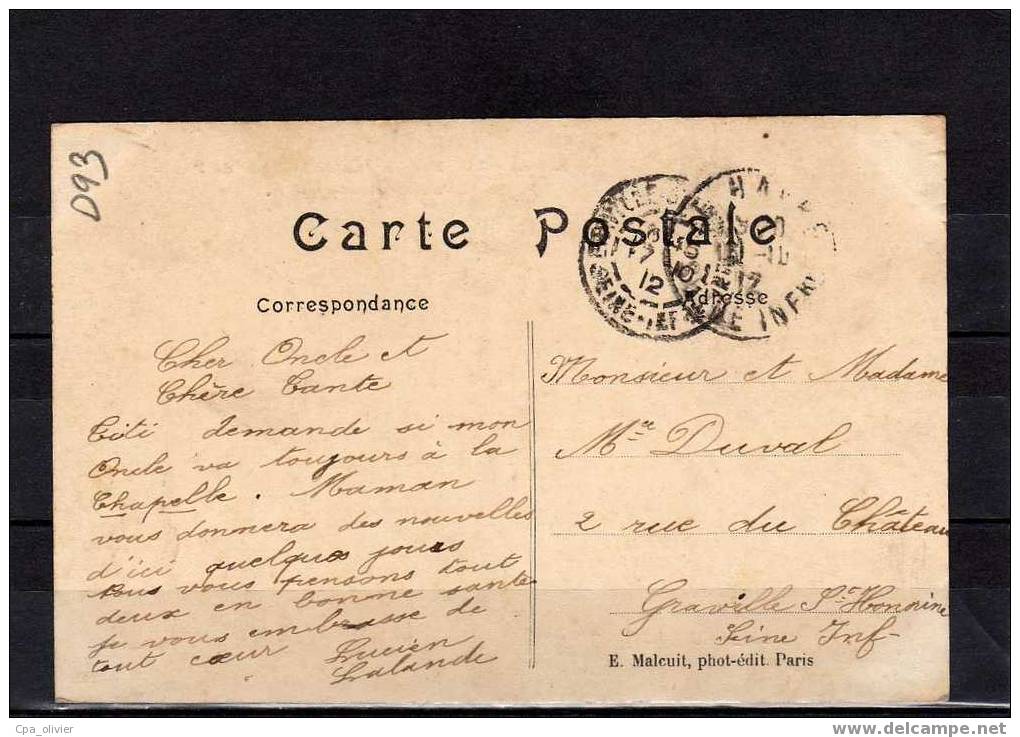 D93
Carte Postale
Correspondance
Adresse
Cher Oncle et
Chère Tante
Titi demande si mon
Oncle va toujours à la
Chapelle. Maman
vous donnera des nouvelles
d'ici quelques jours
tous vous pensons tout
deux en bonne santé
je vous embrasse de
tout cœur Lucien
Lalande
Monsieur et Madame
Mr Duval
2 rue du Château
Graville Ste Honorine
Seine Inf
E. Malcuit, phot-édit. Paris
Cpa_olivier
www.delcampe.net